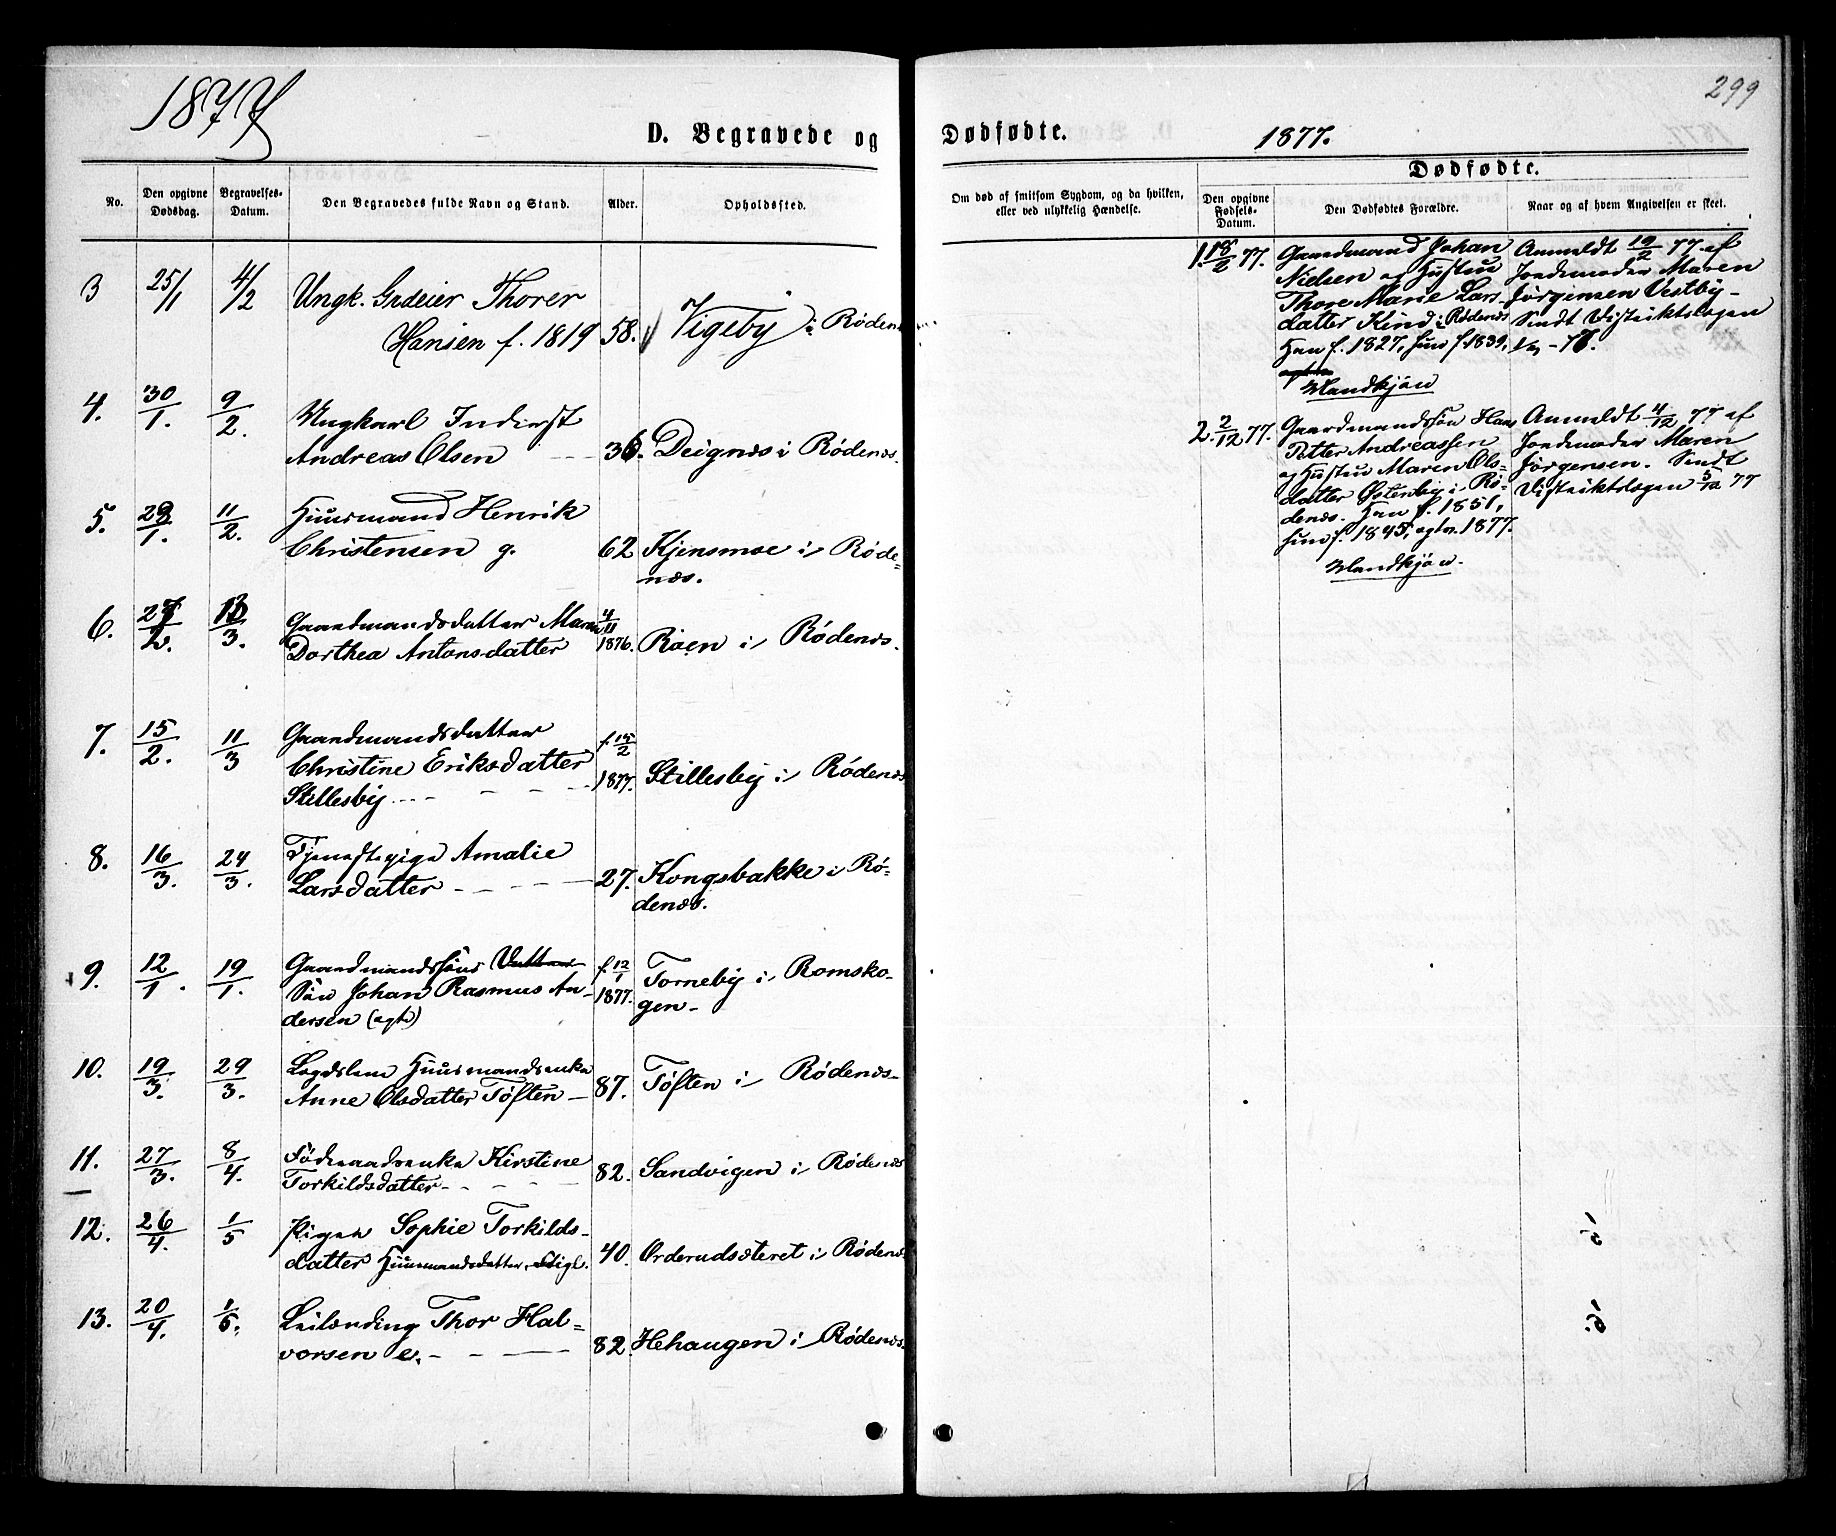 1877
D. Begravede og
No.
Den opgivne Dødsdag.
Begravelses-Datum.
Den Begravedes fulde Navn og Stand.
Alder.
Opholdssted.
3 25/1 4/2 Ungk. Grdeier Thorer
Hansen f. 1819 58. Vigeby i Rødenæs
4. 30/1. 9/2. Ungkarl Inderst
Andreas Olsen 36. Deignæs i Rødenæs.
5. 11/2. Huusmand Henrik
Christensen g. 62 Kjensmoe i Røde=
næs.
6. 3. Gaardmandsdatter Maren 4/11
Dorthea Antonsdatter 1876. Roen i Rødenæs.
7. 15/2. 11/3 Gaardmandsdatter f. 15/2
Christine Eriksdatter 1877. Stillesby i Rødenæs
Stillesby
8. 16/3. 24/3. Tjenestepige Amalie
Larsdatter 27. Kongsbakke i Rø-
denæs.
9. 12/1. 19/1. Gaardmandssøns Datter f. 12/1
Søn Johan Rasmus An- 1877. Torneby i Romsko-
dersen (ægte) gen
10. 19/3. 29/3. Lægdslem Huusmandsenke
Anne Olsdatter Tøften 87. Tøften i Rødenæs
11. 27/3. 8/4. Føderaadsenke Kirstine
Torkildsdatter 82. Sandvigen i Rødenæs
12. 26/4. 1/5 Pigen Sophie Torkilds-
datter Huusmandsdatter, 40. Ørderudsæteret i Rødenæs
13. 20/4. 1/5. Leilænding Thor Hal=
vorsen e. 82 Hehaugen i Rødenæs.
299
Dødfødte.
1877.
Dødfødte.
Om død af smitsom Sygdom, og da hvilken,
eller ved ulykkelig Hændelse.
Den opgivne Fødsels-Datum.
Den Dødfødtes Forældre.
Naar og af hvem Angivelsen er skeet.
1. 18/2 77. Gaardmand Johan
Nielsen og Hustru
Thore Marie Lars-
datter Kind i Rødenæs
Han f. 1827, hun f. 1839,
Mandkjøn
Anmeldt 19/2 77 af
Jordemoder Maren
Jørgensen Vestby
Sendt Distriktslægen
2. 2/12 77. Gaardmandssøn Hans
Petter Andreassen
og Hustru Maren Ols-
datter Østenby i Rø-
denæs. Han f. 1851,
hun f. 1845, 1877.
Mandkjøn.
Anmeldt 4/12 77 af
Jordemoder Maren
Jørgensen. Sendt
Distriktslægen 5/12 77